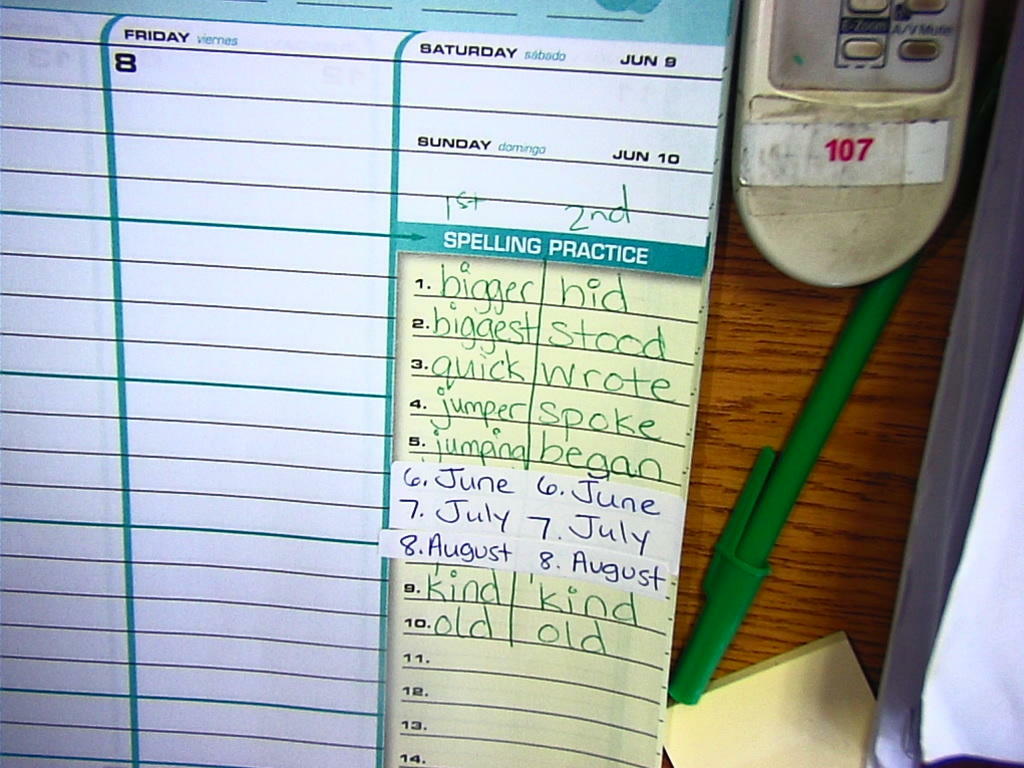 FRIDAY viernes
8
SATURDAY sábado JUN 9
SUNDAY domingo JUN 10
1st 2nd
SPELLING PRACTICE
1. bigger hid
2. biggest stood
3. quick wrote
4. jumper spoke
5. jumping began
6. June 6. June
7. July 7. July
8. August 8. August
9. kind kind
10. old old
11.
12.
13.
14.
E-Zoom A/V Mute
107